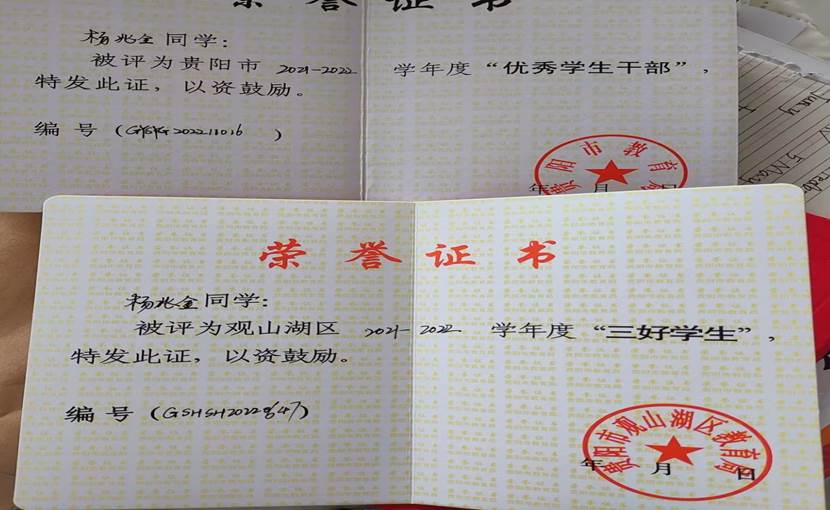 荣誉证书
杨兆金同学:
被评为贵阳市 2021-2022 学年度“优秀学生干部”,
特发此证,以资鼓励。
编号(GYSYG202211016)
贵阳市教育局
年 月 日
荣誉证书
杨兆金同学:
被评为观山湖区 2021-2022 学年度“三好学生”,
特发此证,以资鼓励。
编号(GSHSH2022g647)
贵阳市观山湖区教育局
年 月 日